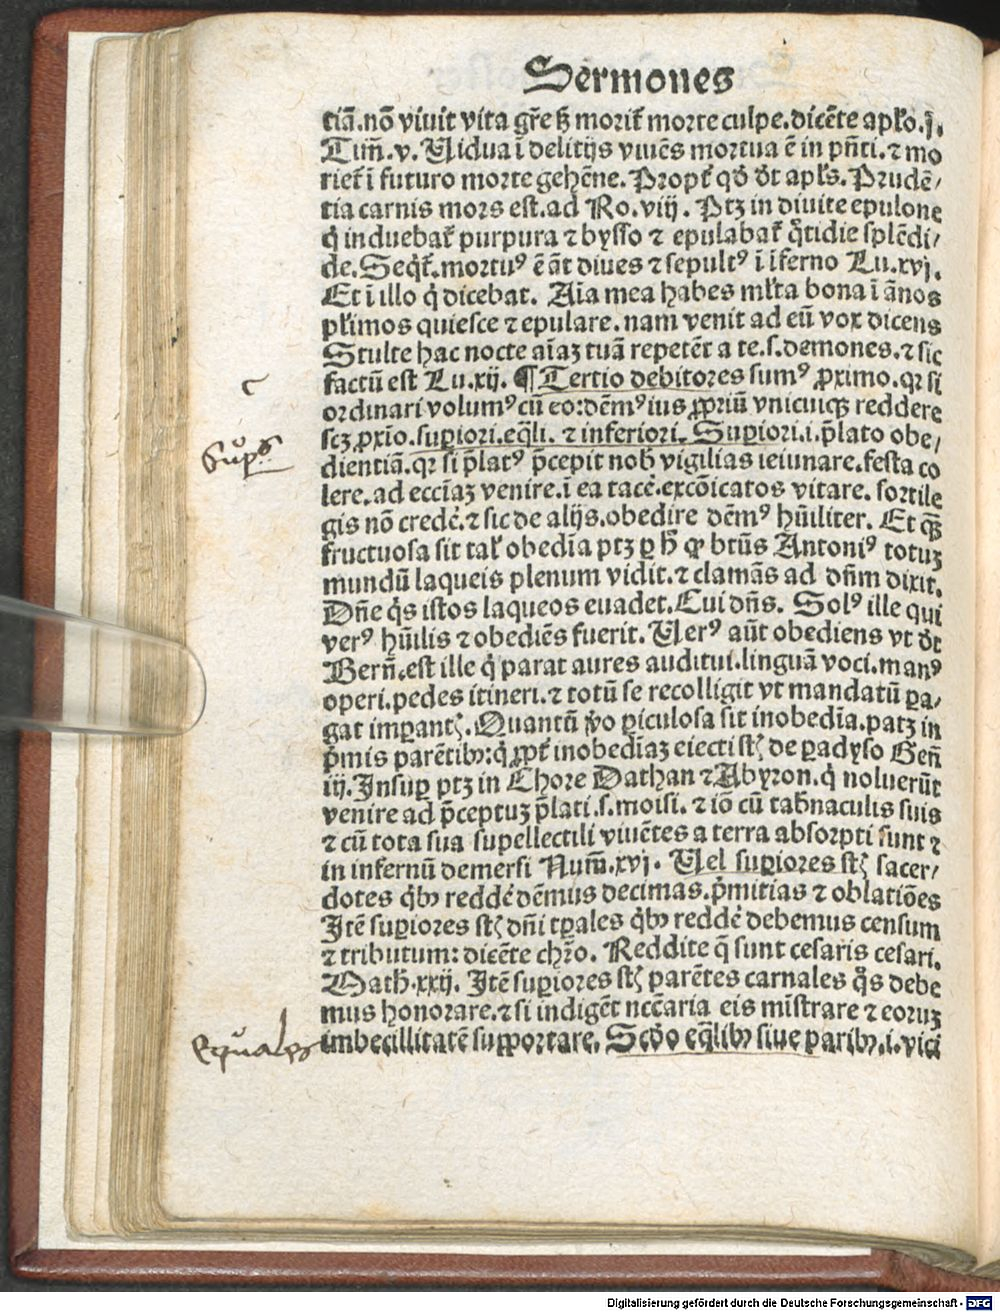 Sermones
tiã.nõ viuit vita gr̃e sꝫ morit̃ morte culpe.dicẽte apl̃o.j.
Tim̃.v. Uidua ĩ delitijs viuẽs mortua ẽ in pñti.⁊ mo
riet̃ ĩ futuro morte gehẽne. Propt̃ qð ðt apl̃s. Prudẽ/
tia carnis mors est.ad Ro.viij. Ptꝫ in diuite epulone
q̇ induebat̃ purpura ⁊ bysso ⁊ epulabat̃ q̃tidie splẽdi/
de. Seqt̃.mortuꝰ ẽ ãt diues ⁊ sepultꝰ ĩ ĩferno Lu.xvj.
Et ĩ illo q̇ dicebat. Aĩa mea habes ml̃ta bona ĩ ãnos
pl̃imos quiesce ⁊ epulare. nam venit ad eũ vox dicens
Stulte hac nocte aĩaꝫ tuã repetẽt a te.s.demones.⁊ sic
factũ est Lu.xij. ¶ Tertio debitores sumꝰ ꝓximo.qꝛ si
ordinari volumꝰ cũ eo:dẽmꝰ ius ꝓpriũ vnicuiqꝫ reddere
scꝫ ꝓxĩo.supiori.eq̃li. ⁊ inferiori. Suꝑiori.i.p̃lato obe/
dientiã.qꝛ si p̃latꝰ p̃cepit nob̃ vigilias ieiunare.festa co
lere.ad eccĩaꝫ venire.ĩ ea tacẽ.excõicatos vitare. sortile
gis nõ credẽ.⁊ sic de alijs.obedire dẽmꝰ hũiliter. Et q̃ꝫ
fructuosa sit tal̃ obedĩa ptꝫ ꝑ h̃ ꝙ btũs Antoniꝰ totuꝫ
mundũ laqueis plenum vidit.⁊ clamãs ad dñm dixit.
Dñe q̇s istos laqueos euadet. Cui dñs. Solꝰ ille qui
verꝰ hũilis ⁊ obediẽs fuerit. Uerꝰ aũt obediens vt ðt
Berñ.est ille q̇ parat aures auditui.linguã voci.manꝰ
operi.pedes itineri.⁊ totũ se recolligit vt mandatũ ꝑa/
gat imꝑantꝭ. Quantũ ṽo ꝑiculosa sit inobedĩa.patꝫ in
p̃mis parẽtibꝰ:q̇ ꝓpt̃ inobedĩaꝫ eiecti sꝭ de paradyso Geñ
iij. Insuꝑ ptꝫ in Chore Dathan ⁊ Abyron.q̇ noluerũt
venire ad p̃ceptuꝫ p̃lati.s.moisi. ⁊ iõ cũ tab̃naculis suis
⁊ cũ tota sua supellectili viuẽtes a terra absorpti sunt ⁊
in infernũ demersi Num̃.xvj. Uel suꝑiores sꝭ sacer/
dotes q̇bꝰ reddẽ dẽmus decimas.p̃mitias ⁊ oblatiões
Itẽ suꝑiores sꝭ dñi tꝑales q̇bꝰ reddẽ debemus censum
⁊ tributum: dicẽte chr̃o. Reddite q̃ sunt cesaris cesari.
Math̃.xxij. Itẽ suꝑiores sꝭ parẽtes carnales q̇s debe
mus honorare.⁊ si indigẽt necc̃aria eis mĩstrare ⁊ eoruꝫ
imbecillitatẽ suꝑportare. Scð̃o eq̃libꝰ siue paribꝰ.i.vici
Equales
Digitalisierung gefördert durch die Deutsche Forschungsgemeinschaft - DFG